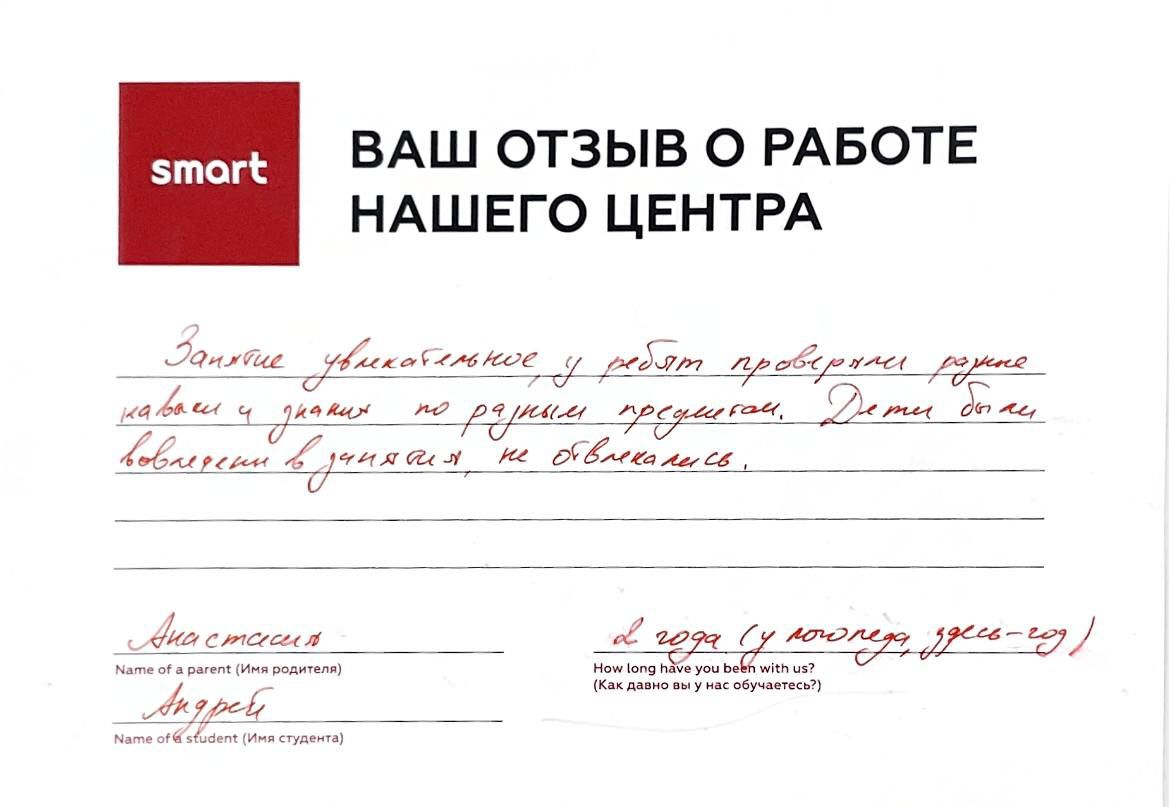 smart
ВАШ ОТЗЫВ О РАБОТЕ
НАШЕГО ЦЕНТРА
Занятие увлекательное, у ребят проверяли разные
навыки и знания по разным предметам. Дети были
вовлечены в занятия, не отвлекались.
Анастасия
2 года (у логопеда, здесь-год)
Name of a parent (Имя родителя)
How long have you been with us?
(Как давно вы у нас обучаетесь?)
Андрей
Name of a student (Имя студента)